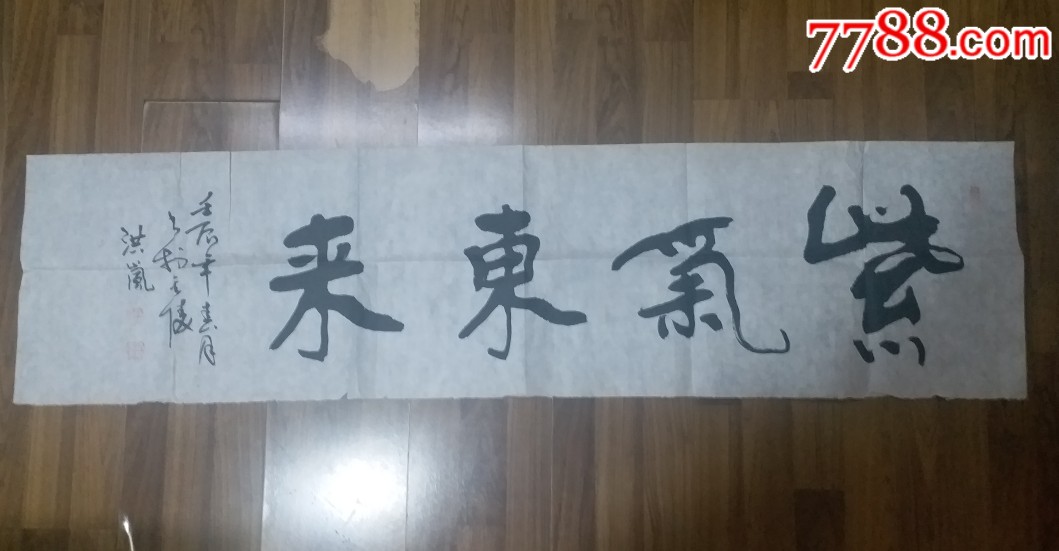 7788.com
紫氣東来
壬辰年春月
洪嵐